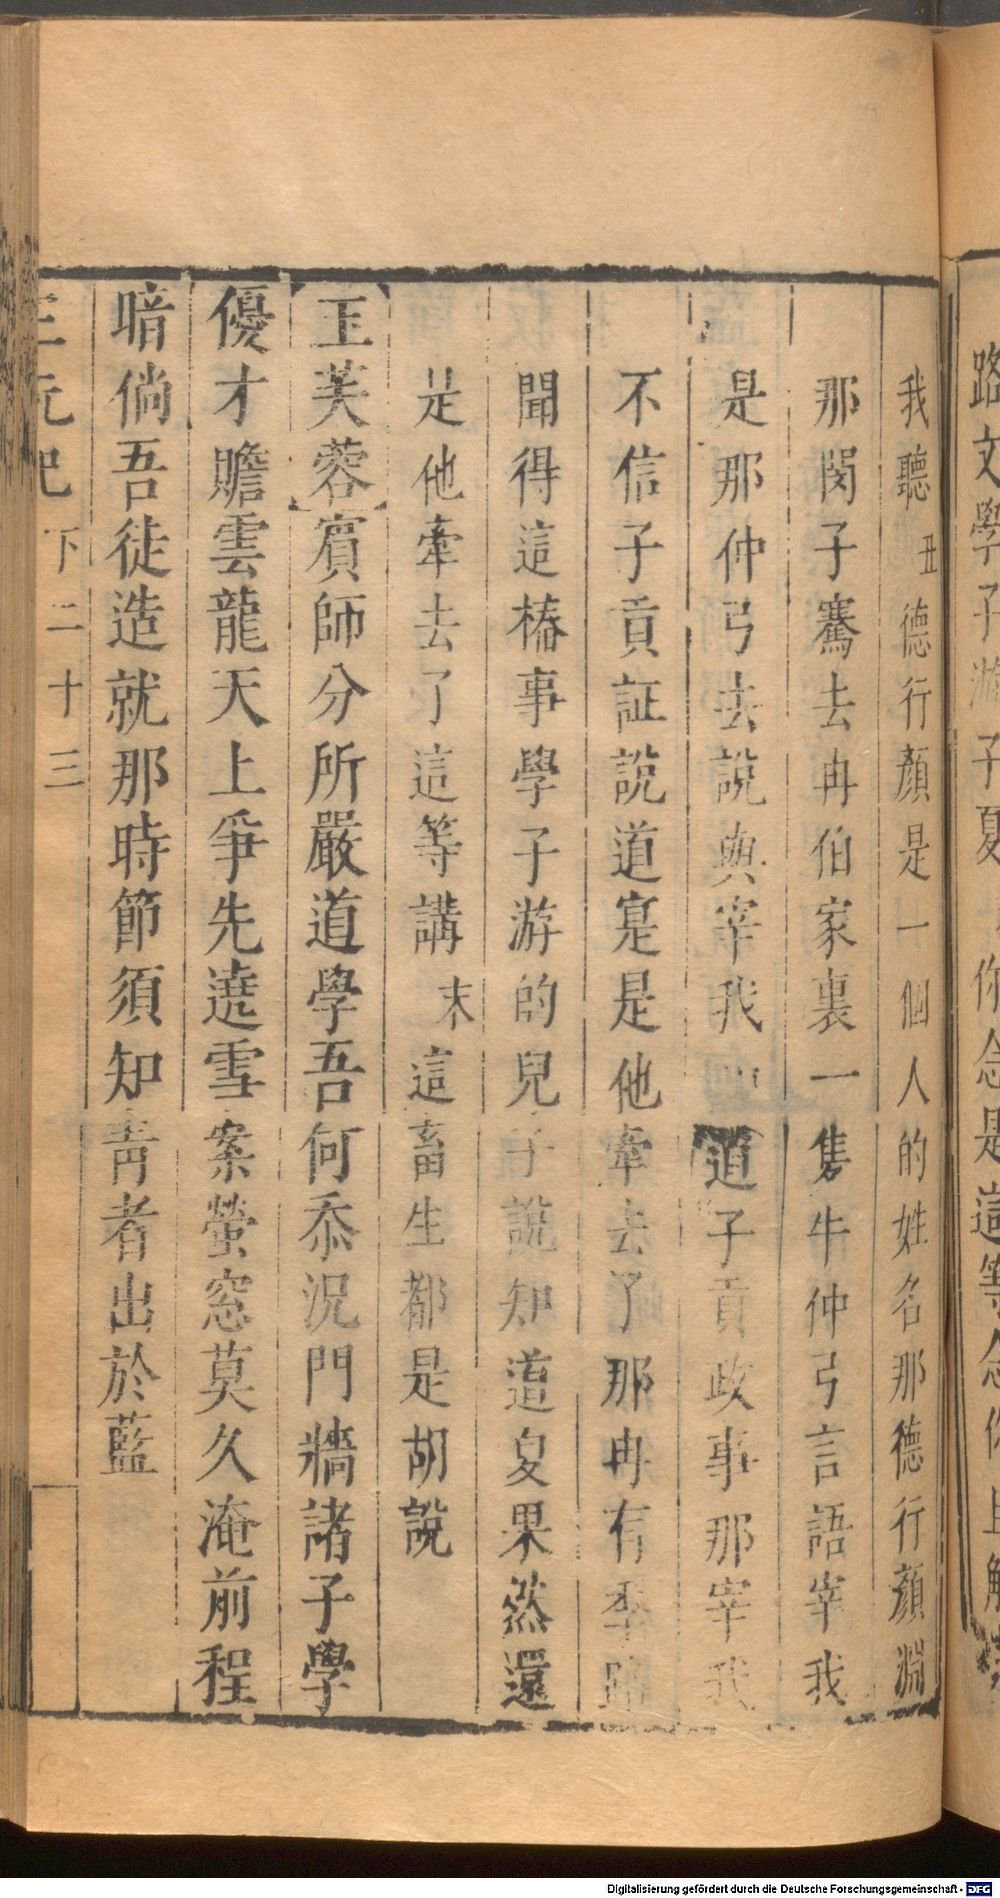 路文學子游子夏 你念是這等念你且解
我聽 丑 德行顏是一個人的姓名那德行顏淵
那閔子騫去冉伯家裏一隻牛仲弓言語宰我
是那仲弓去說與宰我 道子貢政事那宰我
不信子貢証說道寔是他牽去了那冉有季路
聞得這樁事學子游的兒子說知道夏果然還
是他牽去了這等講 末 這畜生都是胡說
玉芙蓉 賓師分所嚴道學吾何忝況門牆諸子學
優才贍雲龍天上爭先遶雪案螢窓莫久淹前程
暗倘吾徒造就那時節須知靑者出於藍
三元記 下二十三
Digitalisierung gefördert durch die Deutsche Forschungsgemeinschaft - DFG